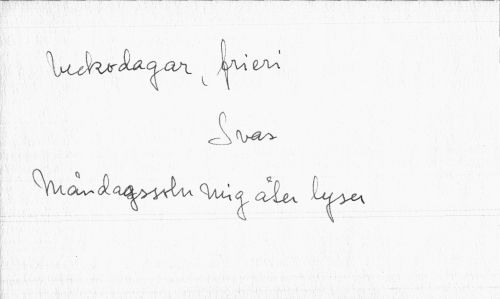 Veckodagar, frieri
Svas
Måndagssoln mig åter lyser